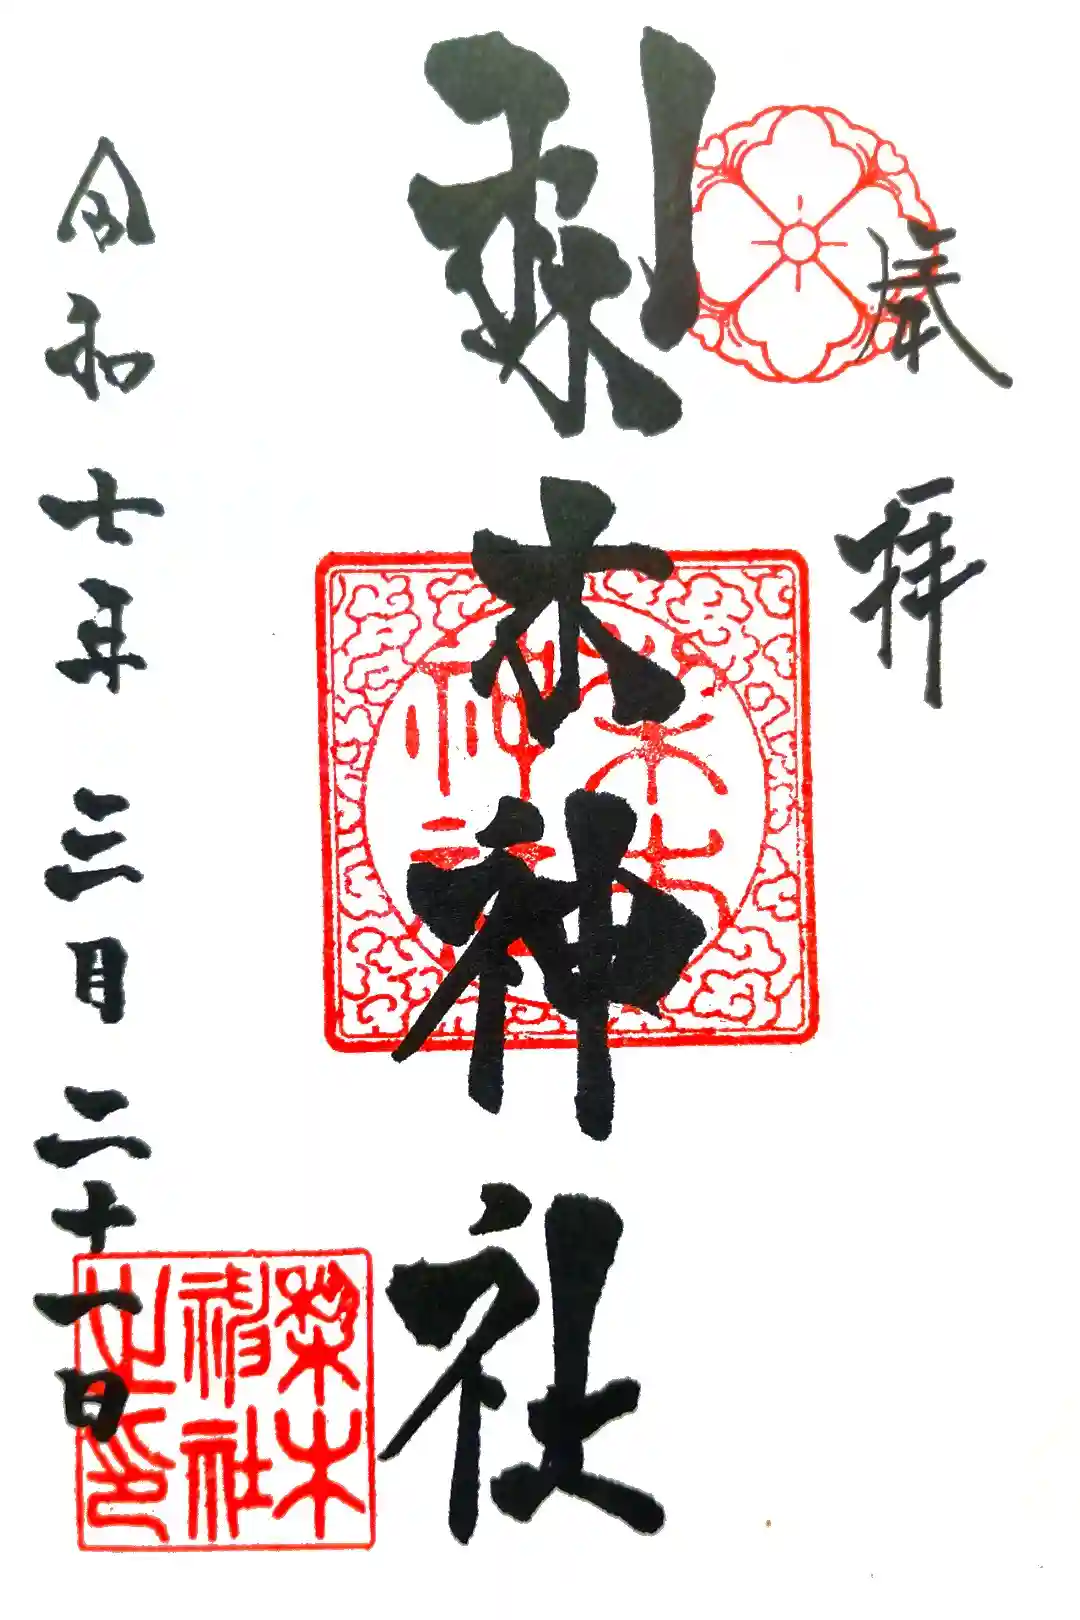 奉拝
梨木神社
梨木
神社
梨木
神社
之印
令和七年 三月 二十一日